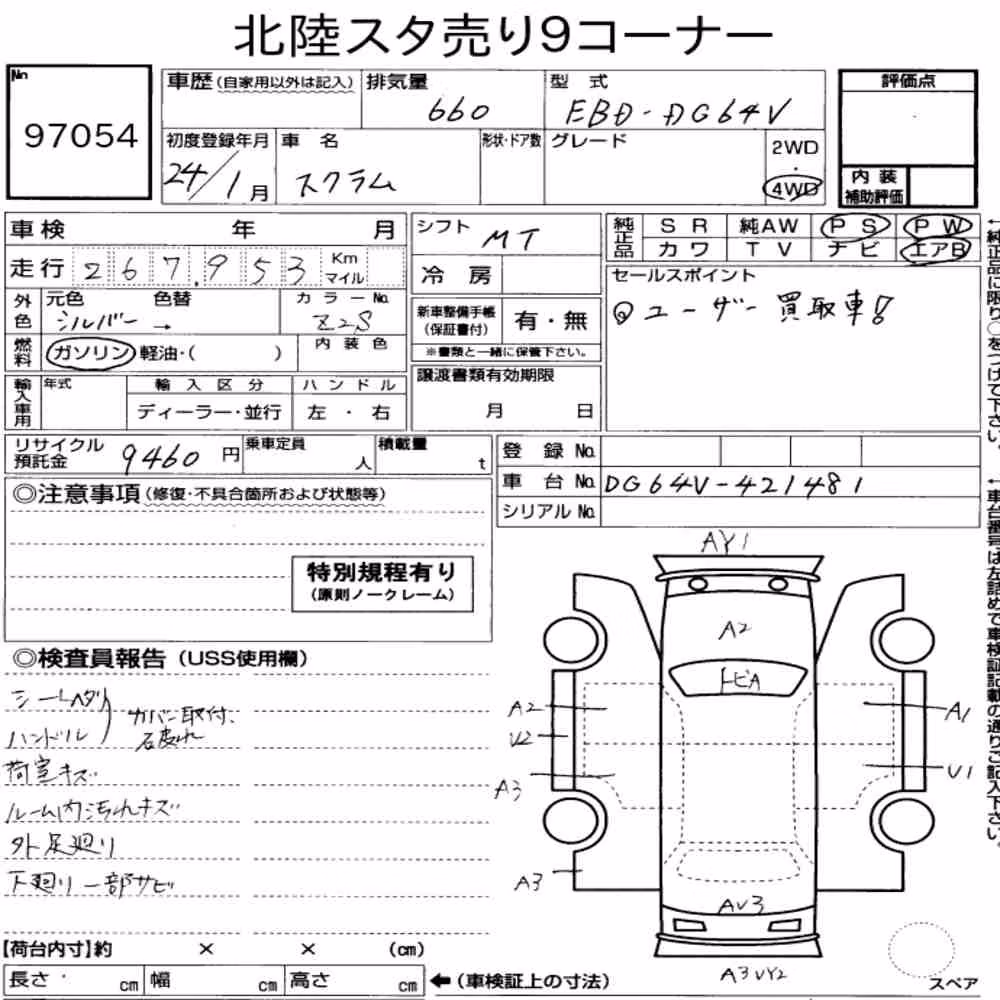 北陸スタ売り9コーナー
No
97054
車歴(自家用以外は記入)
排気量
660
型式
EBD-DG64V
初度登録年月
24/1月
車名
スクラム
形状・ドア数
グレード
2WD
・
4WD
評価点
内装
補助評価
車検 年 月
走行 267,953 Km
マイル
外色
元色 色替
シルバー →
カラーNo.
Z2S
燃料
ガソリン 軽油・( )
内装色
輸入車用
年式
輸入区分
ディーラー・並行
ハンドル
左・右
シフト
MT
冷房
新車整備手帳
(保証書付)
有・無
※書類と一緒に保管下さい。
譲渡書類有効期限
月 日
純正品
SR 純AW PS PW
カワ TV ナビ エアB
セールスポイント
◎ユーザー買取車!
←純正品に限り○をつけて下さい。
リサイクル
預託金
9460 円
乗車定員
人
積載量
t
登録No.
車台No. DG64V-421481
シリアルNo.
←車台番号は左詰めで車検証記載の通りご記入下さい。
◎注意事項(修復・不具合箇所および状態等)
特別規程有り
(原則ノークレーム)
◎検査員報告(USS使用欄)
シートヘタリ
ハンドル
カバー取付、
荷室キズ
ルーム内汚れキズ
外足廻り
下廻り一部サビ
AY1
A2
トビA
A2
U2
A3
A3
A1
U1
AU3
A3 UY2
スペア
【荷台内寸】約 × × (cm)
長さ cm 幅 cm 高さ cm
←(車検証上の寸法)